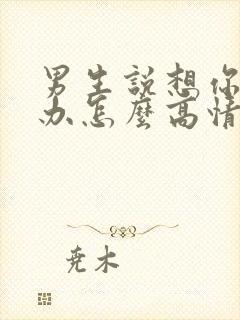 男生說想你
办怎麼高情
尧木